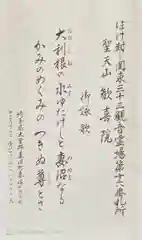 ぼけ封 関東三十三観音霊場第十六番札所
聖天山 歓喜院
御詠歌
大利根の水ゆたけしと妻沼なる
かみのめぐみのつきぬ尊とさ
埼玉県大里郡妻沼町妻沼